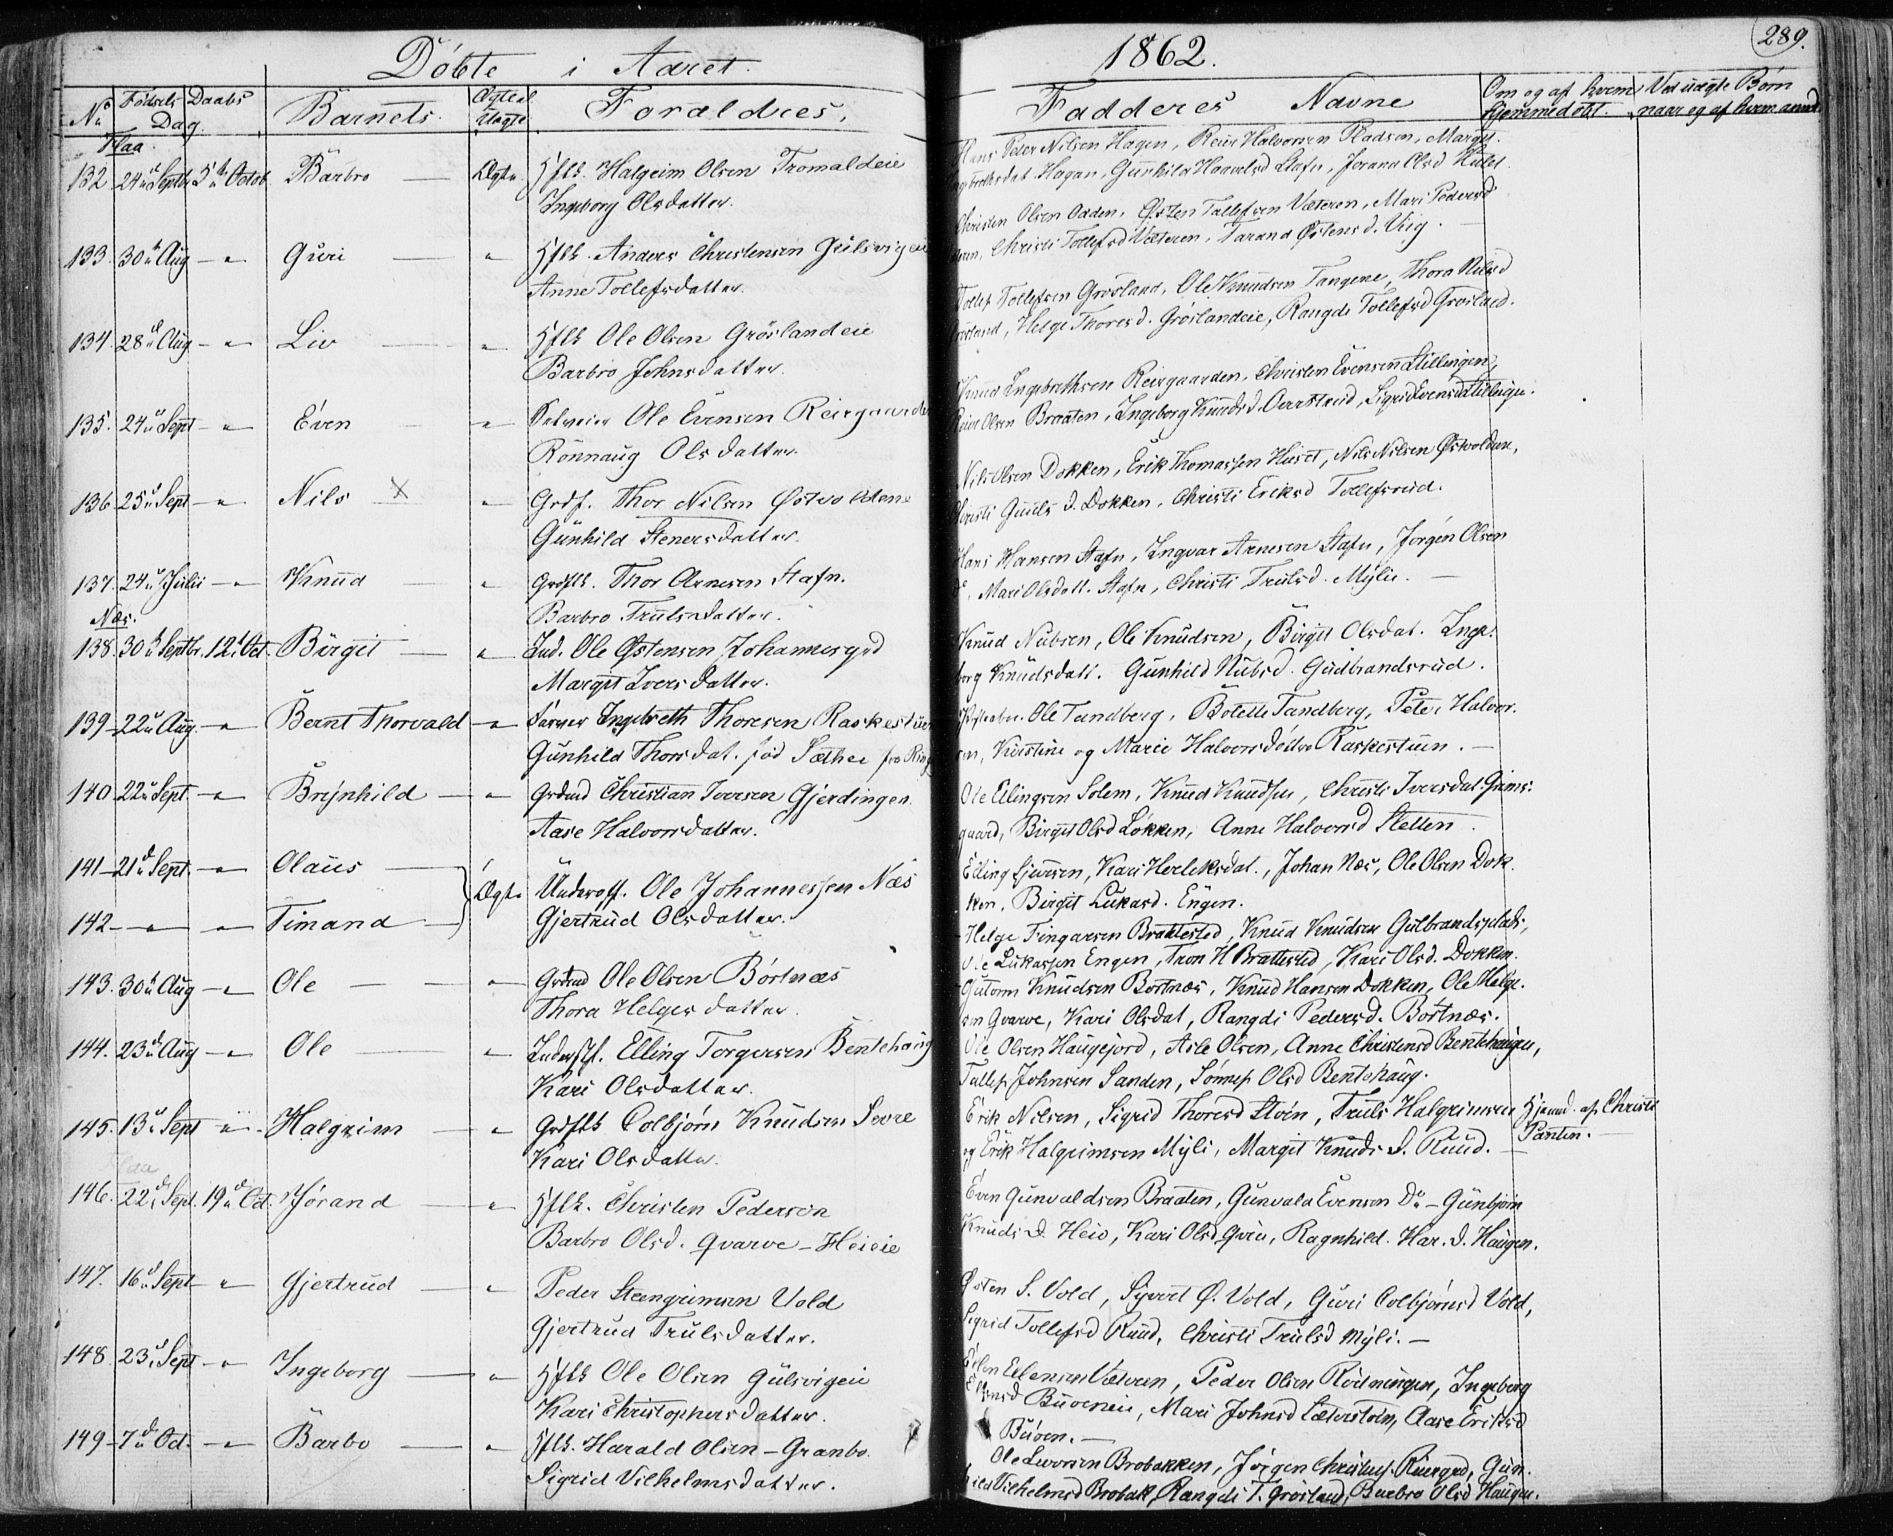 289.
Döbte i Aaret 1862.
No Födsels Daabs Dag. Barnets Ægte el. Uægte Forældres, Fadderes Navne Om og af hvem hjemmedöbt. Ved uægte Börn naar og af hvem anmd.
Flaa.
132 24de Septbr 5te Octob. Barbro — Ægte. Hsfk. Halgrim Olsen Tromaldeie
Ingeborg Olsdatter.
Hans Peder Nilsen Hagen, Reier Halvorsen Pladsen, Margit
Hagen, Gunhild Haavelsd Stafn, Jorand Olsd
133. 30te Aug — " Guri — " Hsfk. Anders Christensen Gulsvigeie
Anne Tollefsdatter.
Christen Olsen Odden, Østen Tollefsen Væteren, Mari Pedersd
Christi Tollefsd Væteren, Jorand Østensd. Viig. —
134. 28de Aug — " Liv — " Hsfk Ole Olsen Gröslandeie
Barbro Johnsdatter.
Tollef Tollefsen Grösland, Ole Knudsen Tangene, Thora Nilsd
Grösland, Helge Thoresd. Gröslandeie, Rangdi Tollefsd Grösland.
135. 24de Sept — " Even " Selveier Ole Evensen Reiergaarden
Rönnaug Olsdatter.
Knud Ingebrethsen Reiergaarden, Christen Evensen Stillingen,
Reier Olsen Braaten, Ingeborg Knudsd. Aavestrud, Sigri Evensd Stillingen.
136. 25de Sept — " Nils — X " Grdf. Thor Nilsen Østvolden
Gunhild Stenersdatter.
Nils Olsen Dokken, Erik Thomassen Huset, Nils Nilsen Østvolden,
Christi Gunls D. Dokken, Christi Eriksd Tollefsrud.
137. 24de Julii — " Knud — " Grdfk. Thor Arnesen Stafn.
Barbro Trulsdatter.
Hans Hansen Stafn, Ingvar Arnesen Stafn, Jörgen Olsen
Mari Olsdatt. Stafn, Christi Trulsd. Myli. —
Næs.
138. 30te Septbr. 12te Oct. Birgit — " Ind. Ole Østensen Johannesgrd
Margit Iversdatter.
Knud Nubsen, Ole Knudsen, Birgit Olsdat. Inge:
borg Knudsdatt. Gunhild Nubsd. Gudbrandsrud.
139 — 22de Aug. — " Bernt Thorvald — " Farver Ingebreth Thoresen Raskestuen
Gunhild Thorsdat. föd Sæther fra Ring
Ole Tandberg, Botelle Tandberg, Peter Halvor.
sen, Kirstine og Marie Halvorsdöttre Raskestuen. —
140 22de Sept. — " Brynhild — " Grdmd Christian Iversen Gjerdingen.
Aase Halvorsdatter.
Ole Ellingsen Solem, Knud Knudsen, Christi Iversdat. Grims:
gaard, Birgit Olsd Lökken, Anne Halvorsd Stetten.
141 — 21de Sept. — " Olaus — } Ægte Underoff. Ole Johannessen Næs
Elling Sjursen, Kari Herleksdat., Johan Næs, Ole Olsen Dok
ken, Birgit Lukasd. Engen.
142 — " — " Timand — Gjertrud Olsdatter.
Helge Fingarsen Brattested, Knud Knudsen Gulbrandsplads,
Ole Lukassen Engen, Tron H Brattested, Kari Olsd. Dokken.
143. 30te Aug — " Ole — " Grdmd Ole Olsen Börtnæs
Thora Helgesdatter.
Gutorm Knudsen Bortnæs, Knud Hansen Dokken, Ole Helge.
sen Qvarve, Kari Olsdat, Rangdi Pedersd. Bortnæs.
144. 23de Aug — " Ole — " Inderst. Elling Torgersen Bentehaug
Kari Olsdatter.
Ole Olsen Haugejord, Asle Olsen, Anne Christensd Bentehaugen,
Tollef Johnsen Sanden, Sönnef Olsd Bentehaug.
145. 13de Sept — " — Halgrim — " Grdfk Colbjörn Knudsen Sevre
Kari Olsdatter.
Erik Nilsen, Sigrid Thoresd Stvén, Truls Halgrimsen
og Erik Halgrimsen Myli, Margit Knuds D. Ruud. —
Hjemd. af Christi
Panten. —
Flaa
146. 22de Sept. 19de Oct. Jörand — " Hsfk. Christen Pedersen
Barbro Olsd. Qvarve — Heieie
Even Gunvaldsen Braaten, Gunvald Evensen Do — Gunbjörn
Knuds D. Heie, Kari Olsd, Ragnhild. Har. D. Haugen.
147. 16de Sept — " Gjertrud — " Peder Steengrimsen Vold
Gjertrud Trulsdatter.
Østen S. Vold, Syvert Ø. Vold, Guri Colbjörnsd Vold,
Sigrid Tollefsd Ruud, Christi Trulsd Myli. —
148. 23de Sept — " Ingeborg — " Hsfk Ole Olsen Gulsvigeie
Kari Christophersdatter.
Ellensen Væteren, Peder Olsen Rödningen, Ingeborg
Buveneie, Mari Johnsd Sæterstöen, Aase Eriksd
Buven. —
149 — 7de Oct. — " Barbo — " Hsfk. Harald Olsen — Granbo.
Sigrid Vilhelmsdatter.
Ole Sworsen Brobakken, Jörgen Christophs. Ruergrd, Gun.
hild Vilhelmsd Brobak, Rangdi T. Grösland, Barbro Olsd Haugen.